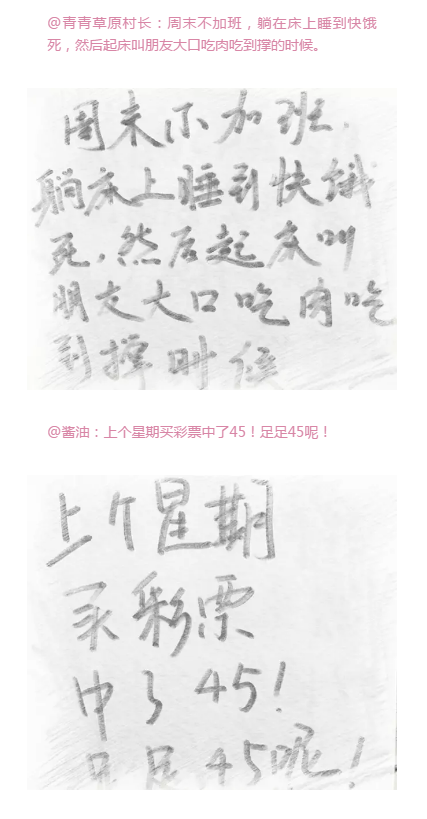 @青青草原村长：周末不加班，躺在床上睡到快饿
死，然后起床叫朋友大口吃肉吃到撑的时候。
周末不加班.
躺床上睡到快饿
死.然后起床叫
朋友大口吃肉吃
到撑时候
@酱油：上个星期买彩票中了45！足足45呢！
上个星期
买彩票
中了45!
足足45呢!